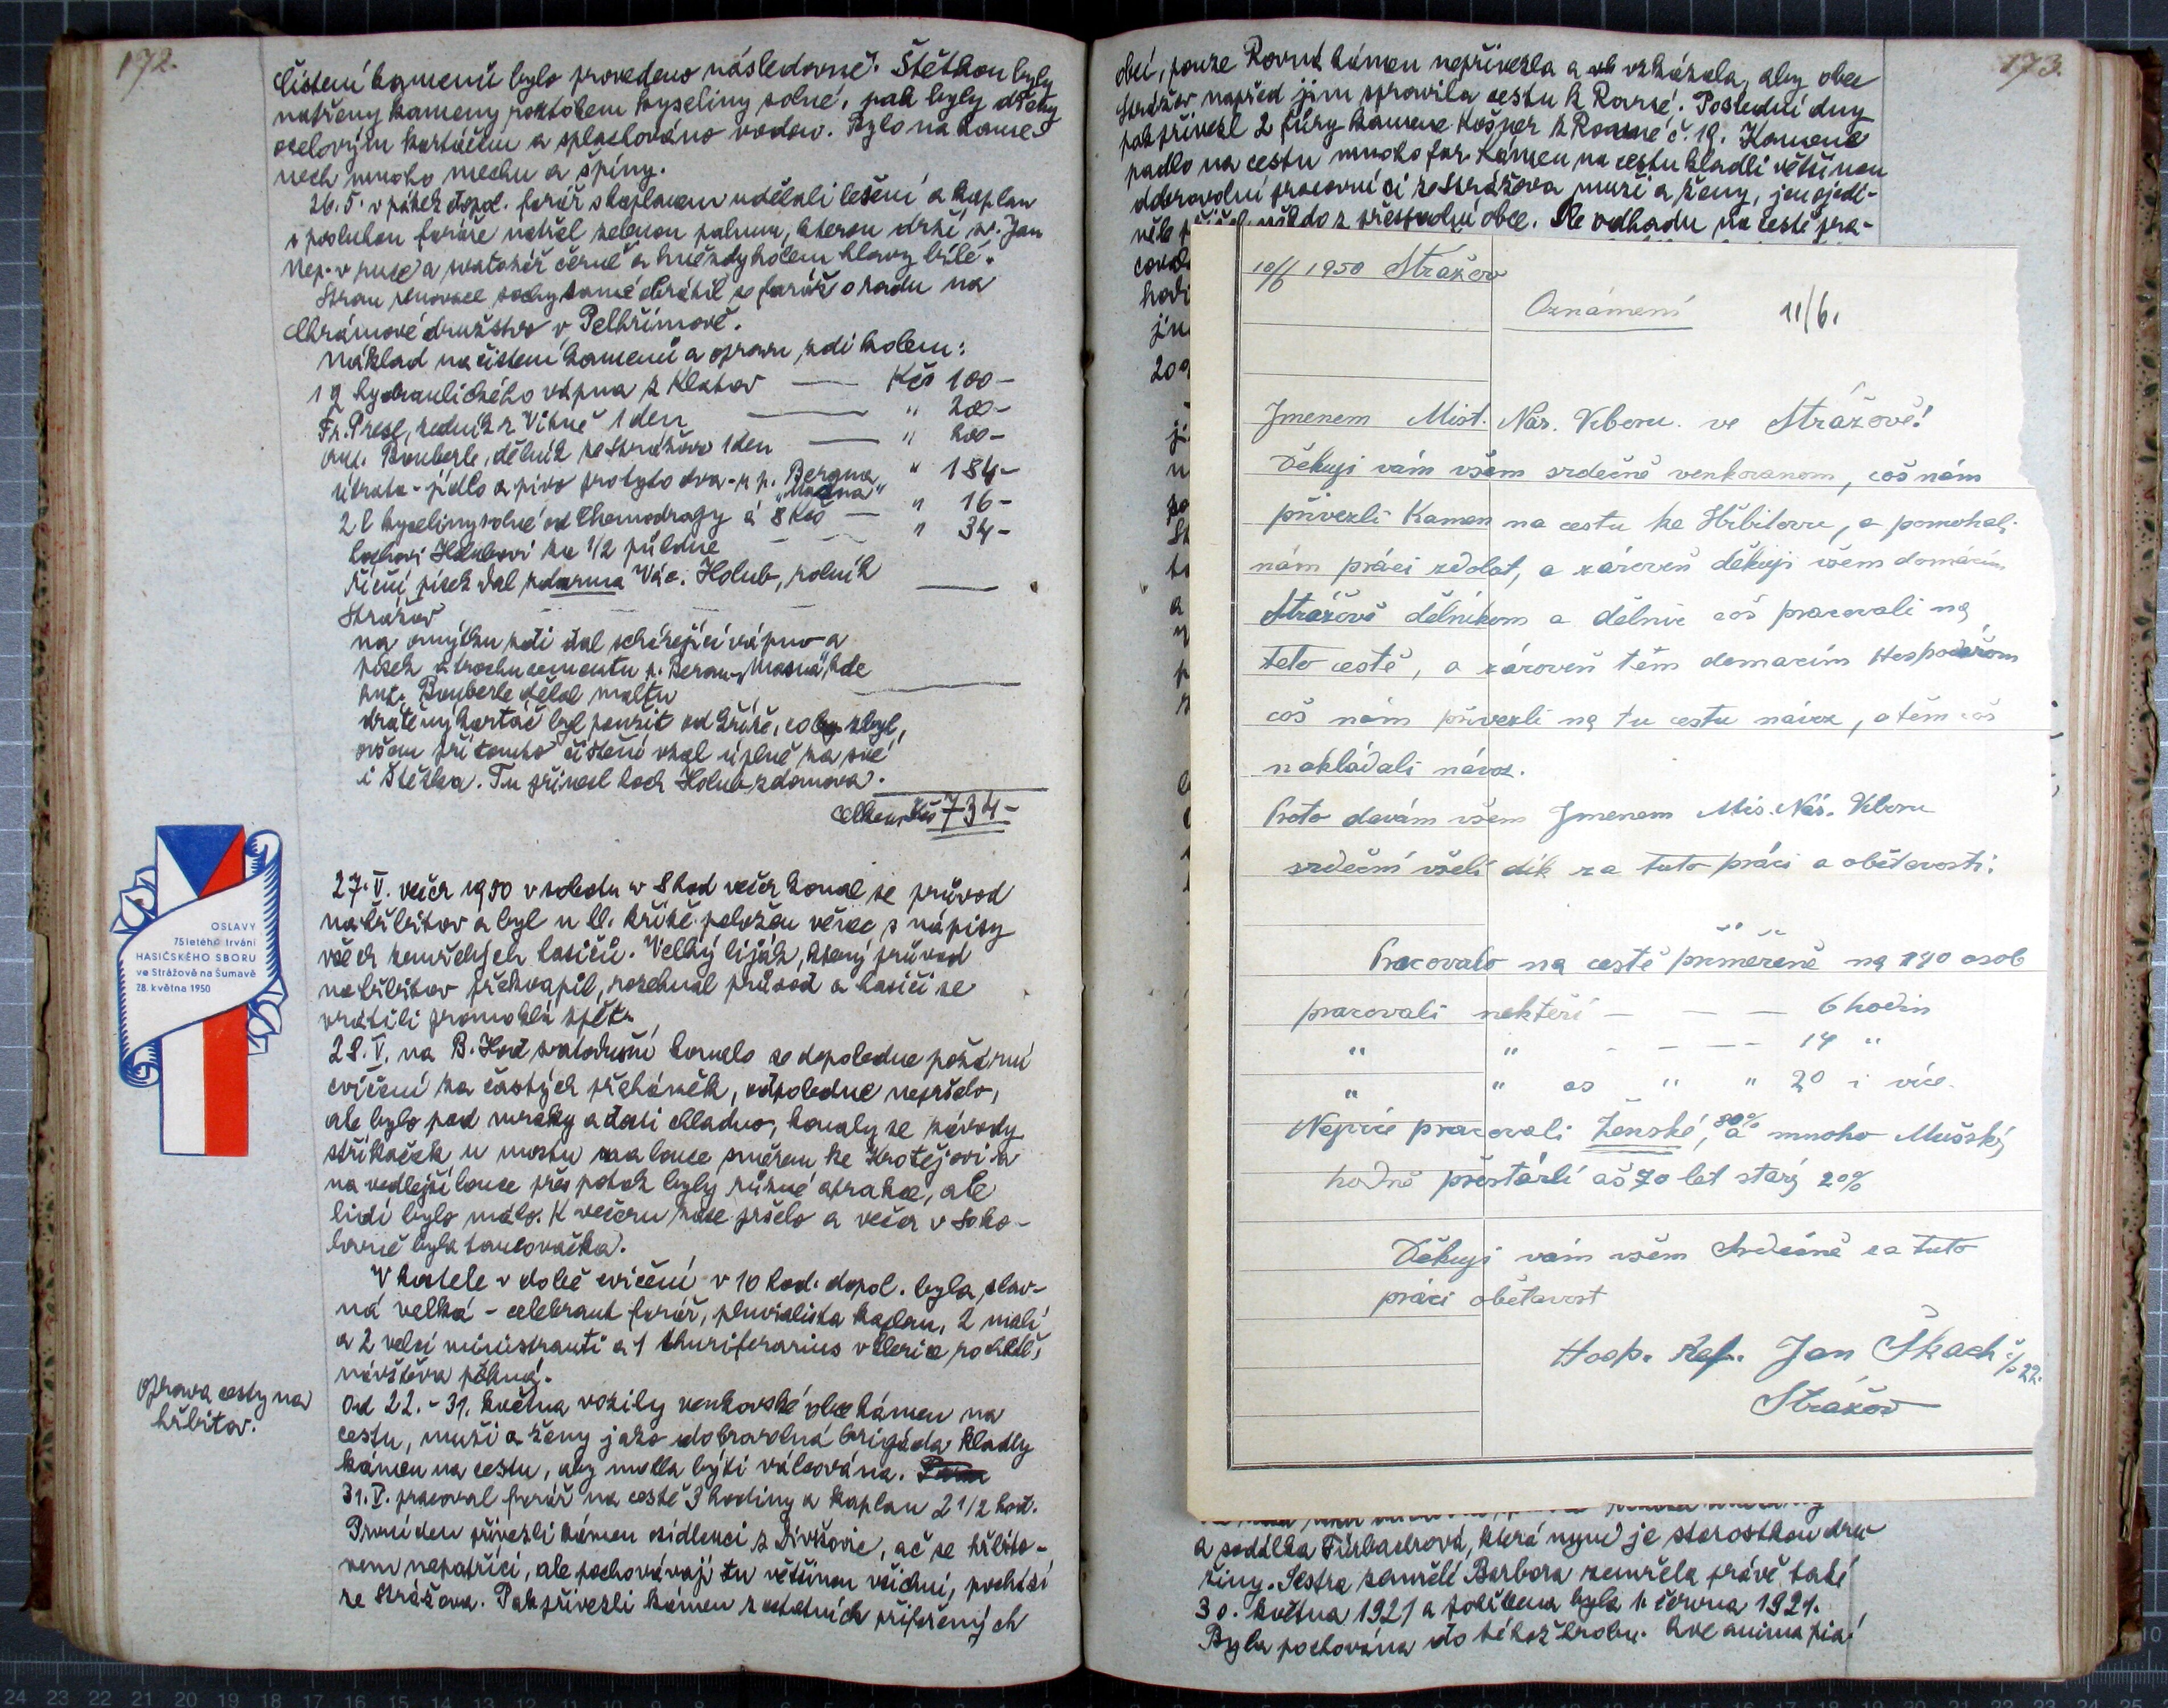 172.
čištení kamenů bylo provedeno následovně. Štětkou byly
natřeny kameny roztokem kyseliny solné, pak byly dřeny
ocelovým kartáčem a splachováno vodou. Bylo na kame-
nech mnoho mechu a špíny.
26.5. v pátek dopol. farář s kaplanem udělali lešení a kaplan
s posluhou faráře natřel zelenou palmu, kterou drží sv. Jan
Nep. v ruce a svatozář černě a hvězdy kolem hlavy bíle.
Stran renovace sochy samé obrátil se farář o radu na
Chrámové družstvo v Pelhřimově.
Náklad na čistení kamenů a opravu zdi kolem:
1 q hydraulického vápna z Klatov — Kčs 100-
Fr. Presl, zedník z Vítně 1 den — " 200-
Ant. Bouberle, dělník ze Strážova 1 den — " 200-
útrata - jídlo a pivo pro tyto dva - u p. Berana " 184-
"Mazna"
2 l kyseliny solné od Chemodrogy á 8 Kčs — " 16-
hochovi Holubovi za 1/2 půldne — " 34-
říční písek dal zdarma Vác. Holub, rolník
Strážov
na omýtku zdi dal scházející vápno a
písek a trochu cementu p. Beran, "Mazna", kde
Ant. Bouberle dělal maltu
drátený kartáč byl použit od kříže, co zbyl,
ovšem při tomto čištění vzal úplně za své
i štětka. Tu přinesl hoch Holub z domova.
Celkem Kčs 734-
OSLAVY
75letého trvání
HASIČSKÉHO SBORU
ve Strážově na Šumavě
28. května 1950
27.V. večer 1950 v sobotu v 8 hod večer konal se průvod
na hřbitov a byl u hl. kříže položen věnec s nápisy
všech zemřelých hasičů. Velký liják, který průvod
na hřbitov překvapil, rozehnal průvod a hasiči se
vrátili promoklí zpět.
28.V. na B. Hod svatodušní konalo se dopoledne požární
cvičení za častých přeháněk, odpoledne nepršelo,
ale bylo pod mraky a dosti chladno, konaly se závody
stříkaček u mostu na louce směrem ke Krotějovi a
na vedlejší louce přes potok byly různé atrakce, ale
lidí bylo málo. K večeru zase pršelo a večer v Soko-
lovně byla tancovačka.
V kostele v době cvičení v 10 hod. dopol. byla slav-
ná velká - celebrant farář, pluvialista kaplan, 2 malí
a 2 velcí ministranti a 1 thuriferarius v klerice
návštěva pěkná.
Oprava cesty na
hřbitov.
Od 22. - 31. května vozily venkovské obce kámen na
cestu, muži a ženy jako dobrovolná brigáda kladly
kámen na cestu, aby mohla býti válcována.
31.V. pracoval farář na cestě 3 hodiny a kaplan 2 1/2 hod.
První den přivezli kámen osídlenci z Divišovic, ač se hřbito-
vem nepatřící, ale pochovávají tu většinou všichni, pochází
ze Strážova. Pak přivezli kámen z ostatních přifařených
173.
obcí, pouze Rovná kámen nepřivezla a vzkázala, aby obec
Strážov napřed jim spravila cestu k Rovné. Poslední dny
pak přivezl 2 fůry kamene Košner z Rovné č. 19. Kamene
padlo na cestu mnoho fůr. Kámen na cestu kladli většinou
dobrovolní pracovníci ze Strážova muži a ženy, jen ojedi-
něle přišel někdo z přespolní obce. Dle odhadu na cestě pra-
10/6 1950 Strážov
Oznámení 11/6.
Jmenem Mist. Nár. Viboru. ve Strážově!
Děkuji vám všem srdečně venkovanom, což nám
přivezli Kamen na cestu ke Hřbitovu, a pomohali
nám práci zdolat, a zároveň děkuji všem domácím
Strážově dělnikom a dělnic což pracovali na
teto cestě, a zároveň těm domacím Hospodářom
což nám přivezli na tu cestu návoz, a těm což
nakládali návoz.
Proto davám všem Jmenem Mis. Nár. Viboru
srdeční vřelí dík za tuto práci a obětavosti:
Pracovalo na cestě průměrně na 180 osob
pracovali nekteří — — — 6 hodin
" " - - - - 14 "
" " as " " 20 i více.
Nejvíc pracovali ženské, 80% a mnoho Mušský
hodně přestárlí až 70 let starý 20%
Děkuji vám všem Srdečně za tuto
práci obětavost
Hosp. Ref. Jan Škach č/p 22.
Strážov
a sodálka Fürbachrová, která nyní je starostkou dru-
žiny. Sestra zemřelé Barbora zemřela právě také
30. května 1921 a pohřbena byla 1. června 1921.
Byla pochována do téhož hrobu. Ave anima pia!